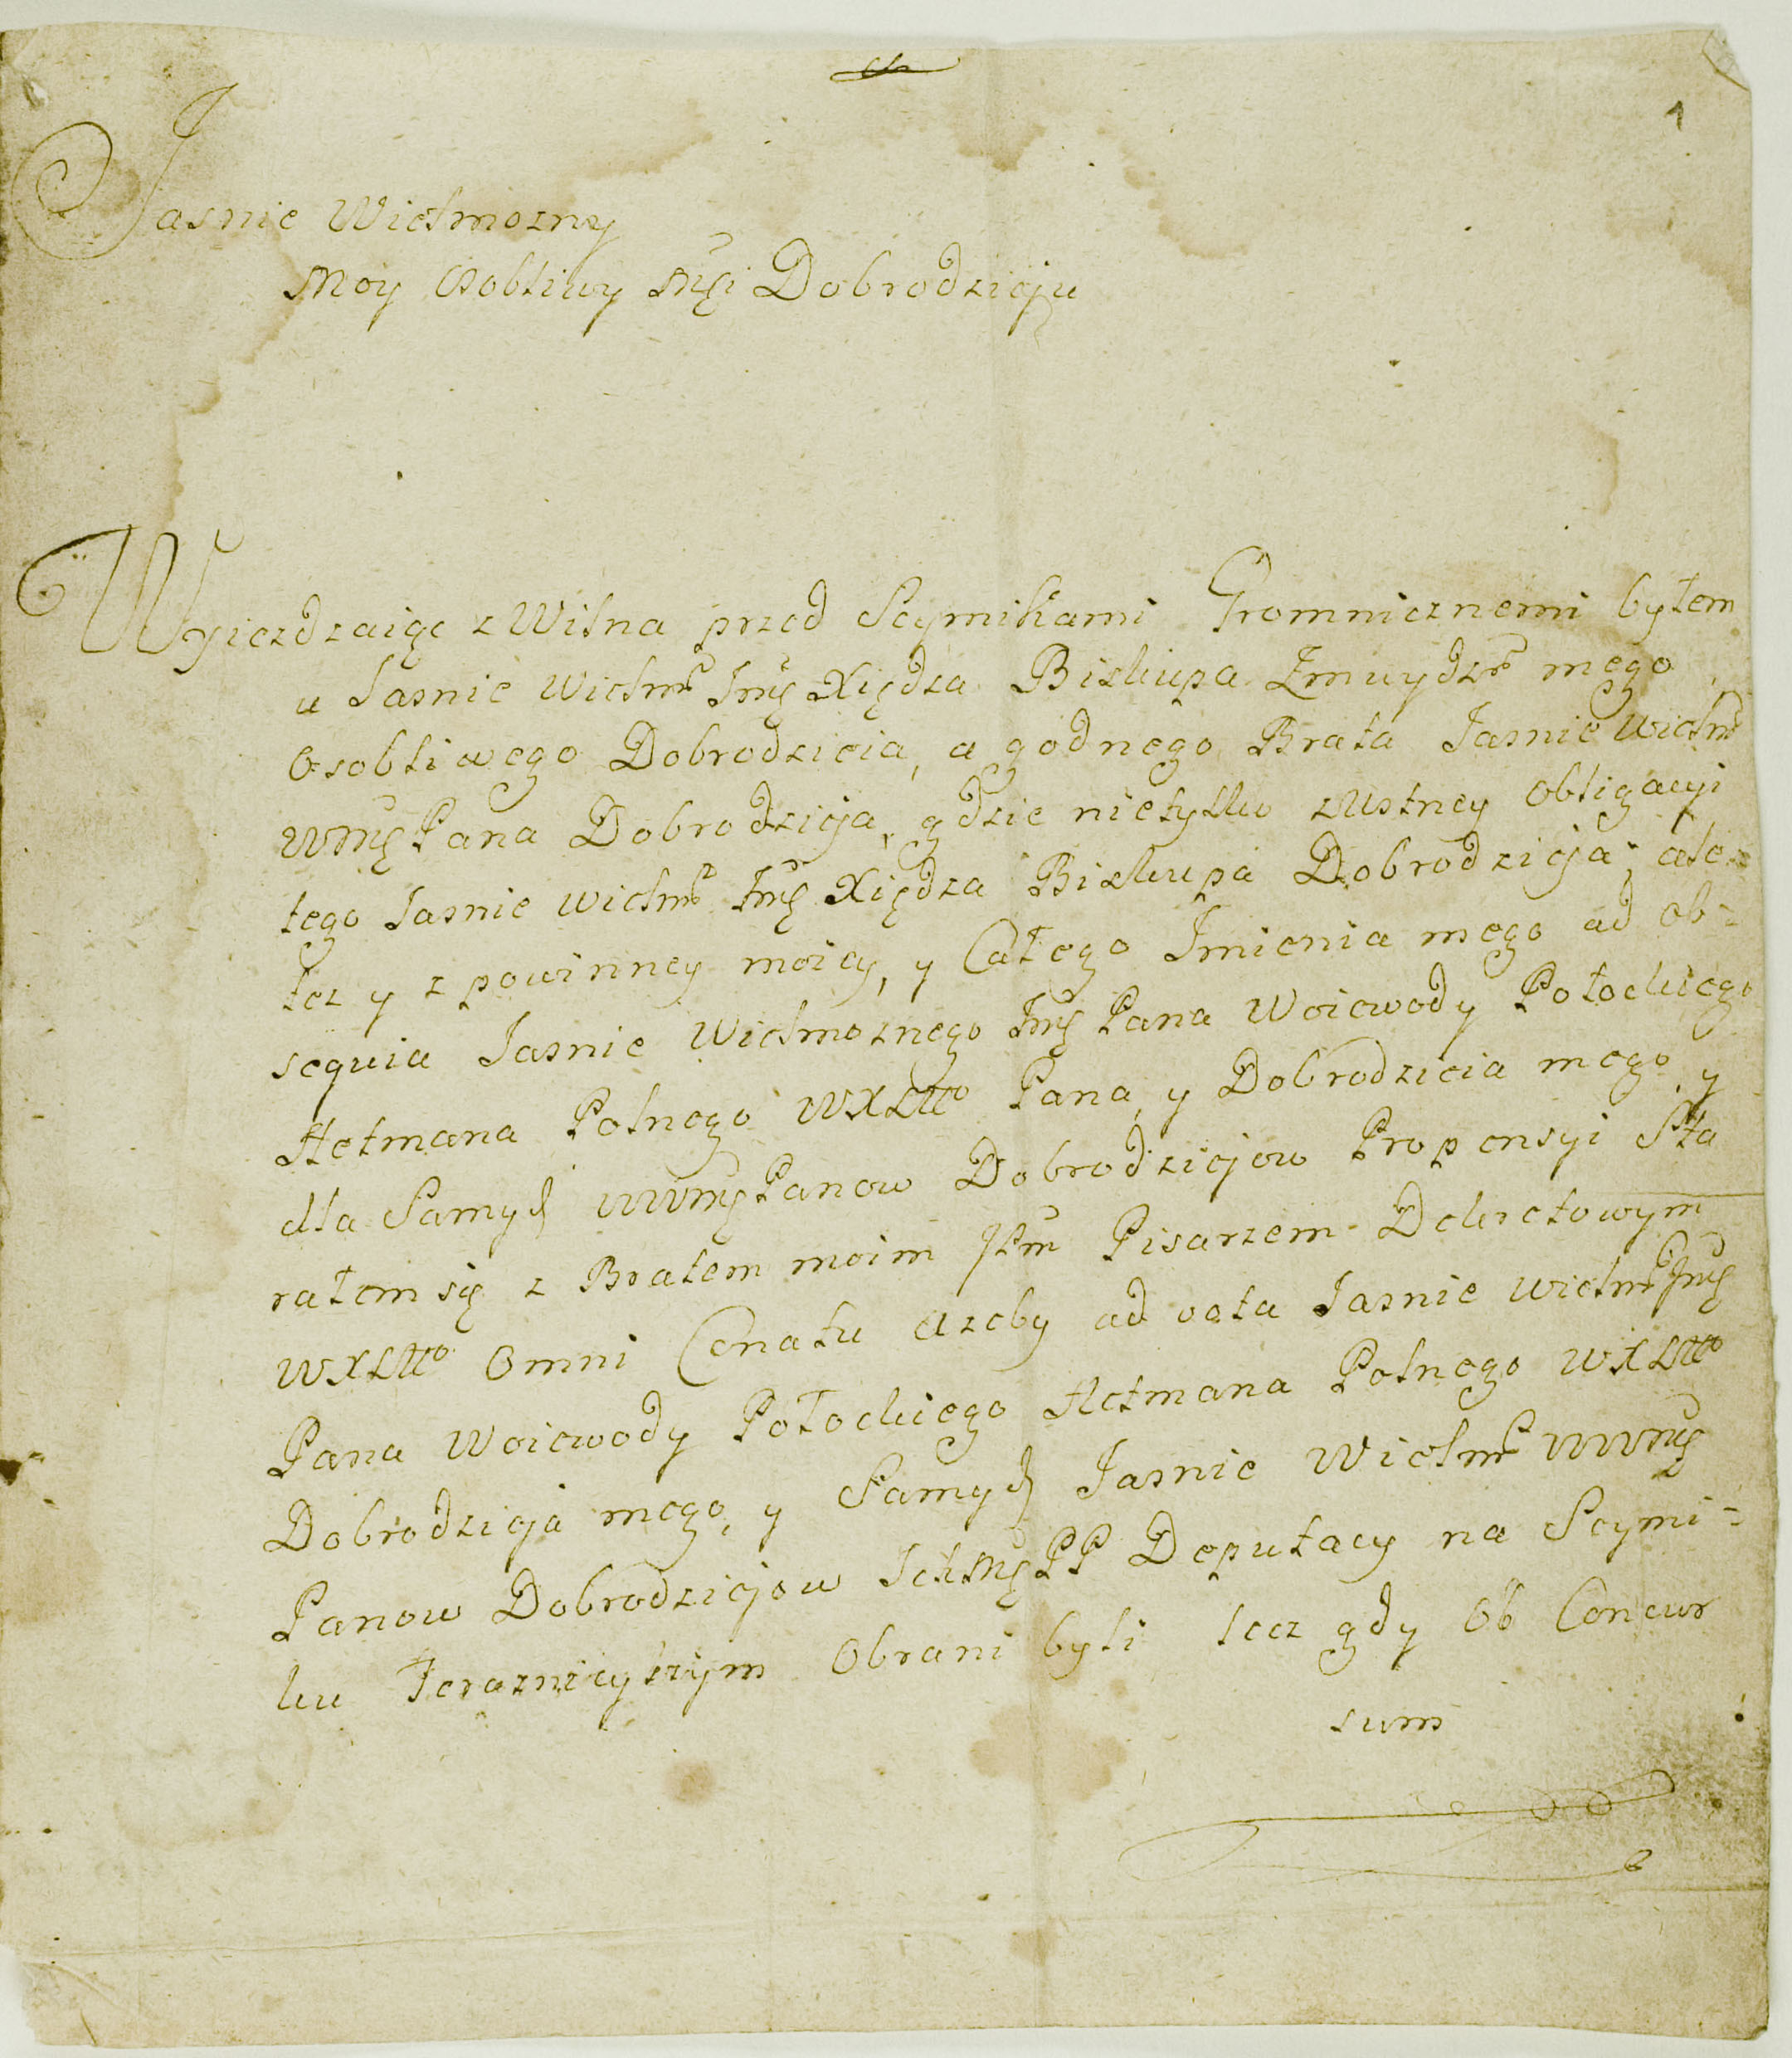 1
Jasnie Wielmozny
Moy Osobliwy Mśći Dobrodzieju
Wyiezdzaiąc z Wilna przed Seymikami Gromnicznemi byłem
u Jasnie Wielmo Jmś Xiędza Biskupa Zmuydzo mego
Osobliwego Dobrodzieia, a godnego Brata Jasnie Wielmo
WMś Pana Dobrodzieja, gdzie nietylko z Ustney Obligacyi
tego Jasnie Wielmo Jmś Xiędza Biskupa Dobrodzieja, ale
tez y z powinney moiey, y Całego Imienia mego ad ob=
sequia Jasnie Wielmoznego Jmś Pana Woiewody Połockiego
Hetmana Polnego WXLttо Pana, y Dobrodzieia mego, y
dla Samych WWMś Panow Dobrodziejow Propensyi Sta
rałem się z Bratem moim JPm Pisarzem Dekretowym
WXLtto Omni Conatu azeby ad vota Jasnie Wielmo Jmś
Pana Woiewody Połockiego Hetmana Polnego WXLtto
Dobrodzieja mego, y Samych Jasnie Wielmo WWMś
Panow Dobrodziejow IchMś PP Deputacy na Seymi=
ku Teraznieyszym Obrani byli lecz gdy Ob Concur
sum